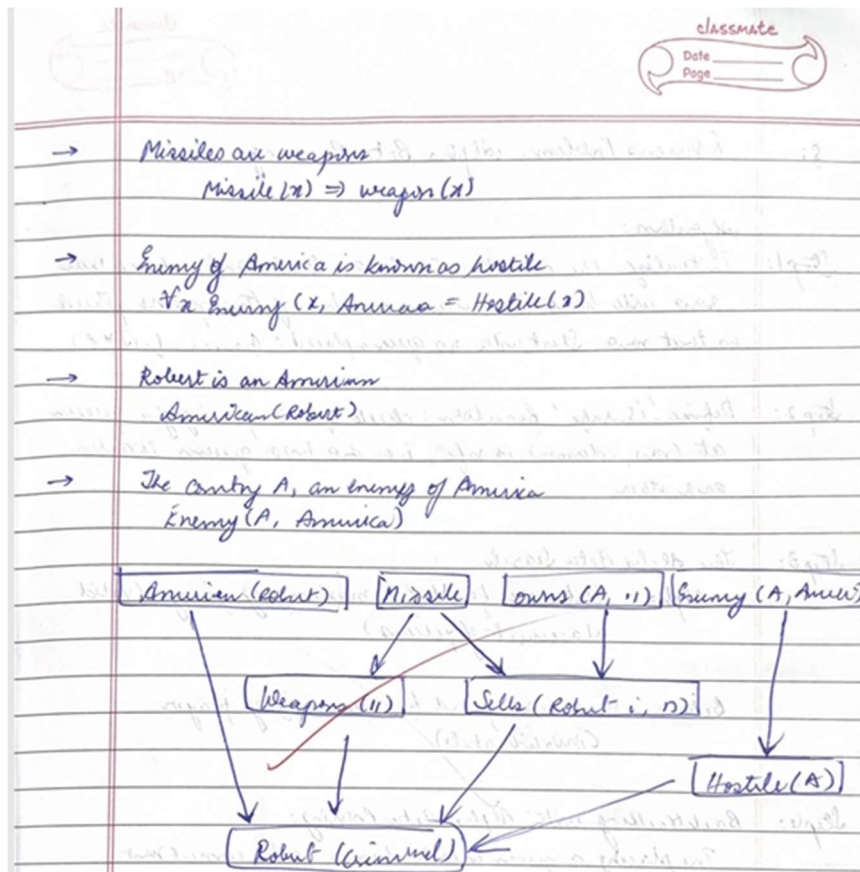 classmate
Date
Page
→ Missiles are weapons
Missile(x) ⇒ weapon(x)
→ Enemy of America is known as hostile
∀x Enemy (x, America = Hostile(x)
→ Robert is an American
American(Robert)
→ The country A, an enemy of America
Enemy(A, America)
American(Robert) Missile owns(A, ) Enemy(A, Americ
Weapons(11) Sells(Robert
Hostile(A)
Robert (Criminal)